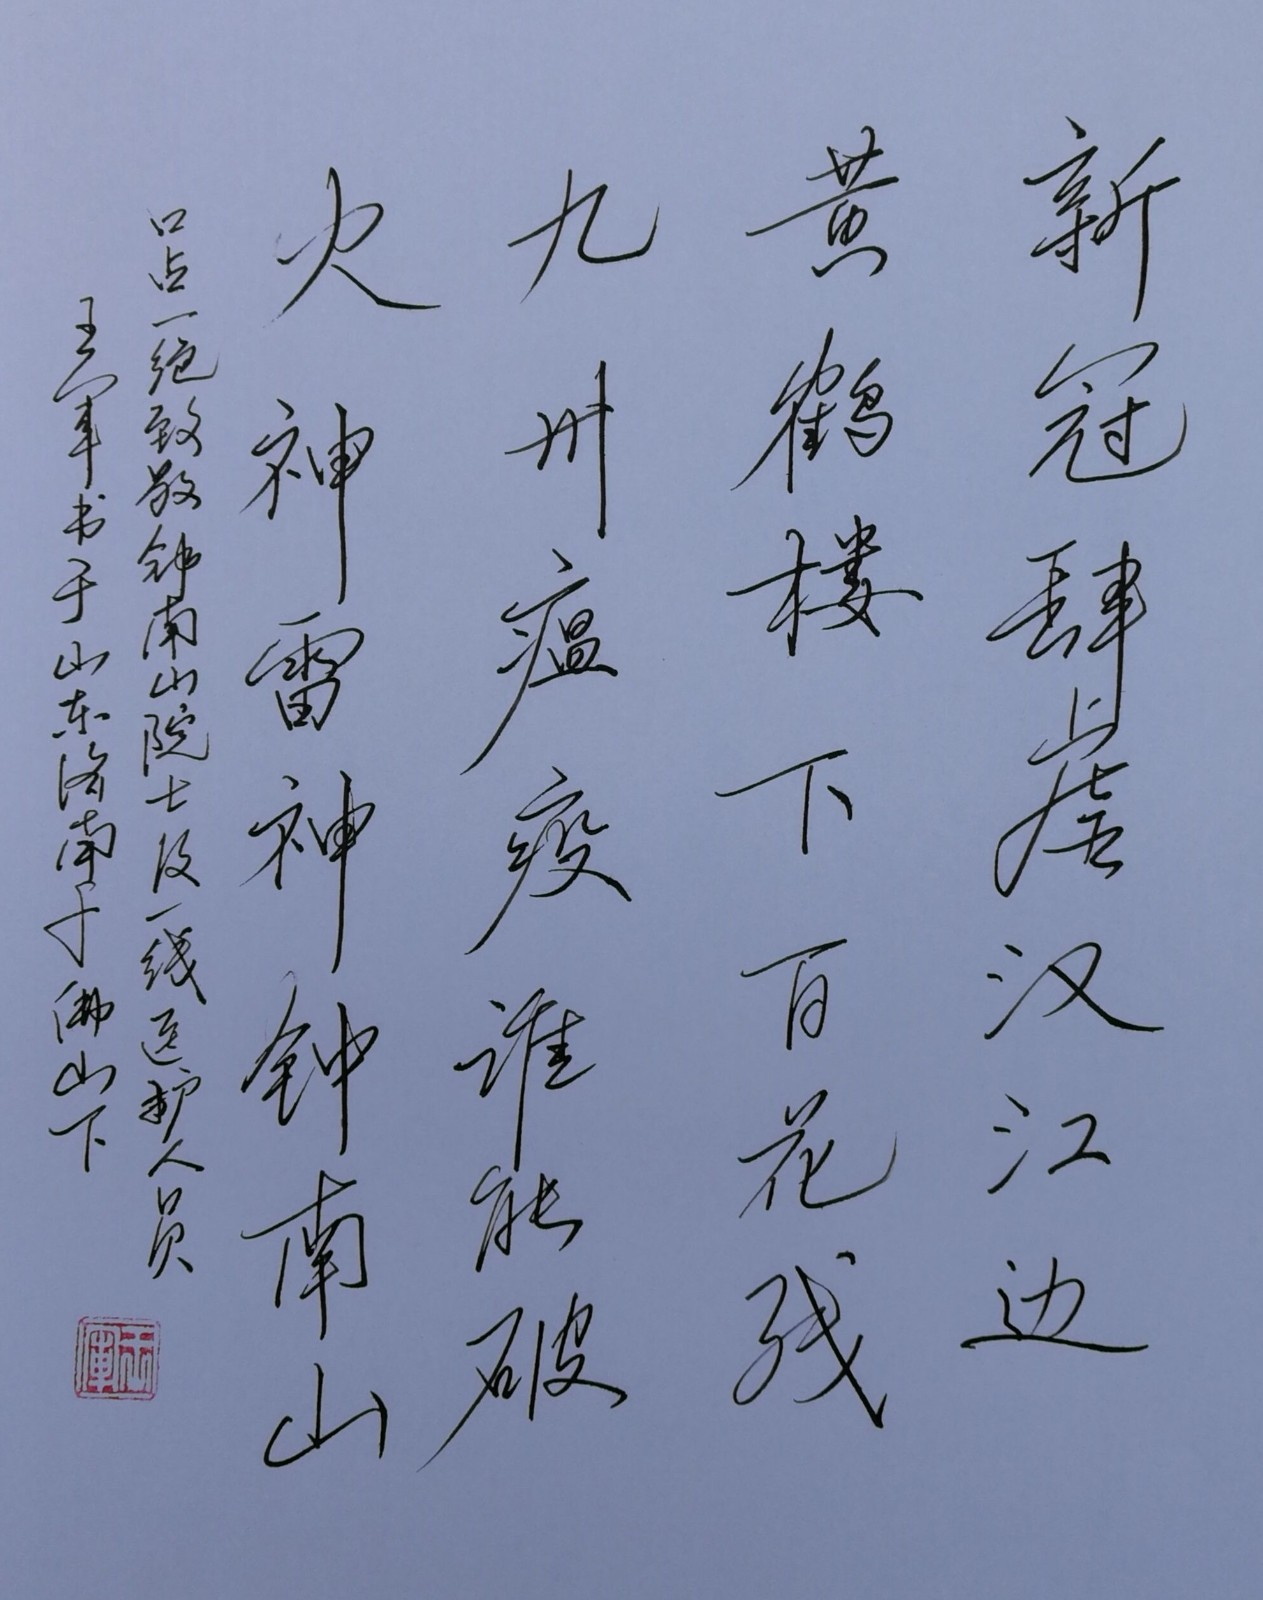 新冠肆虐汉江边
黄鹤楼下百花残
九州瘟疫谁能破
火神雷神钟南山
口占一绝致敬钟南山院士及一线医护人员
王军书于山东济南千佛山下
王军